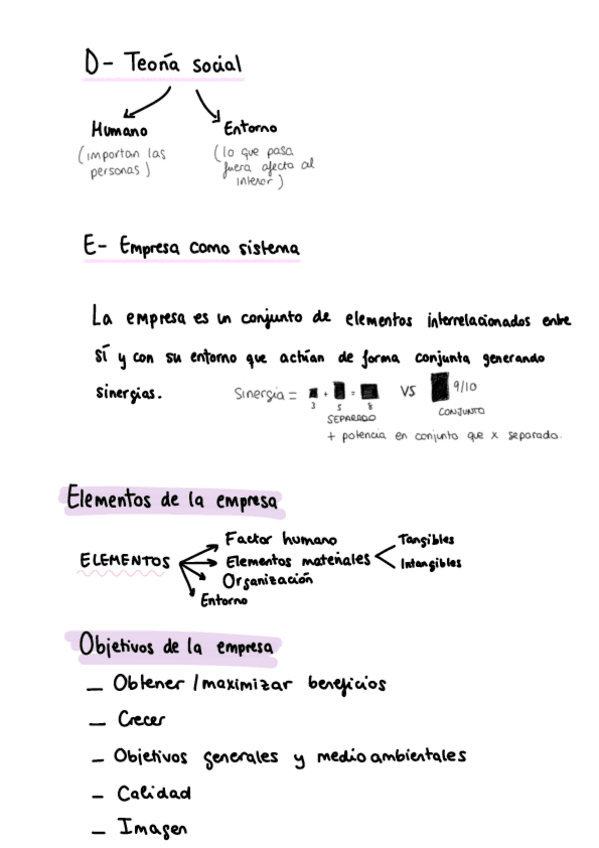 D- Teoría social
Humano
Entorno
(importan las
personas)
(lo que pasa
fuera afecta al
interior)
E- Empresa como sistema
La empresa es un conjunto de elementos interrelacionados entre
sí y con su entorno que actúan de forma conjunta generando
sinergias.
Sinergia = + = VS 9/10
3 5 8
SEPARADO
CONJUNTO
+ potencia en conjunto que x separado.
Elementos de la empresa
ELEMENTOS
Factor humano
Elementos materiales
Tangibles
Intangibles
Organización
Entorno
Objetivos de la empresa
- Obtener / maximizar beneficios
- Crecer
- Objetivos generales y medioambientales
- Calidad
- Imagen